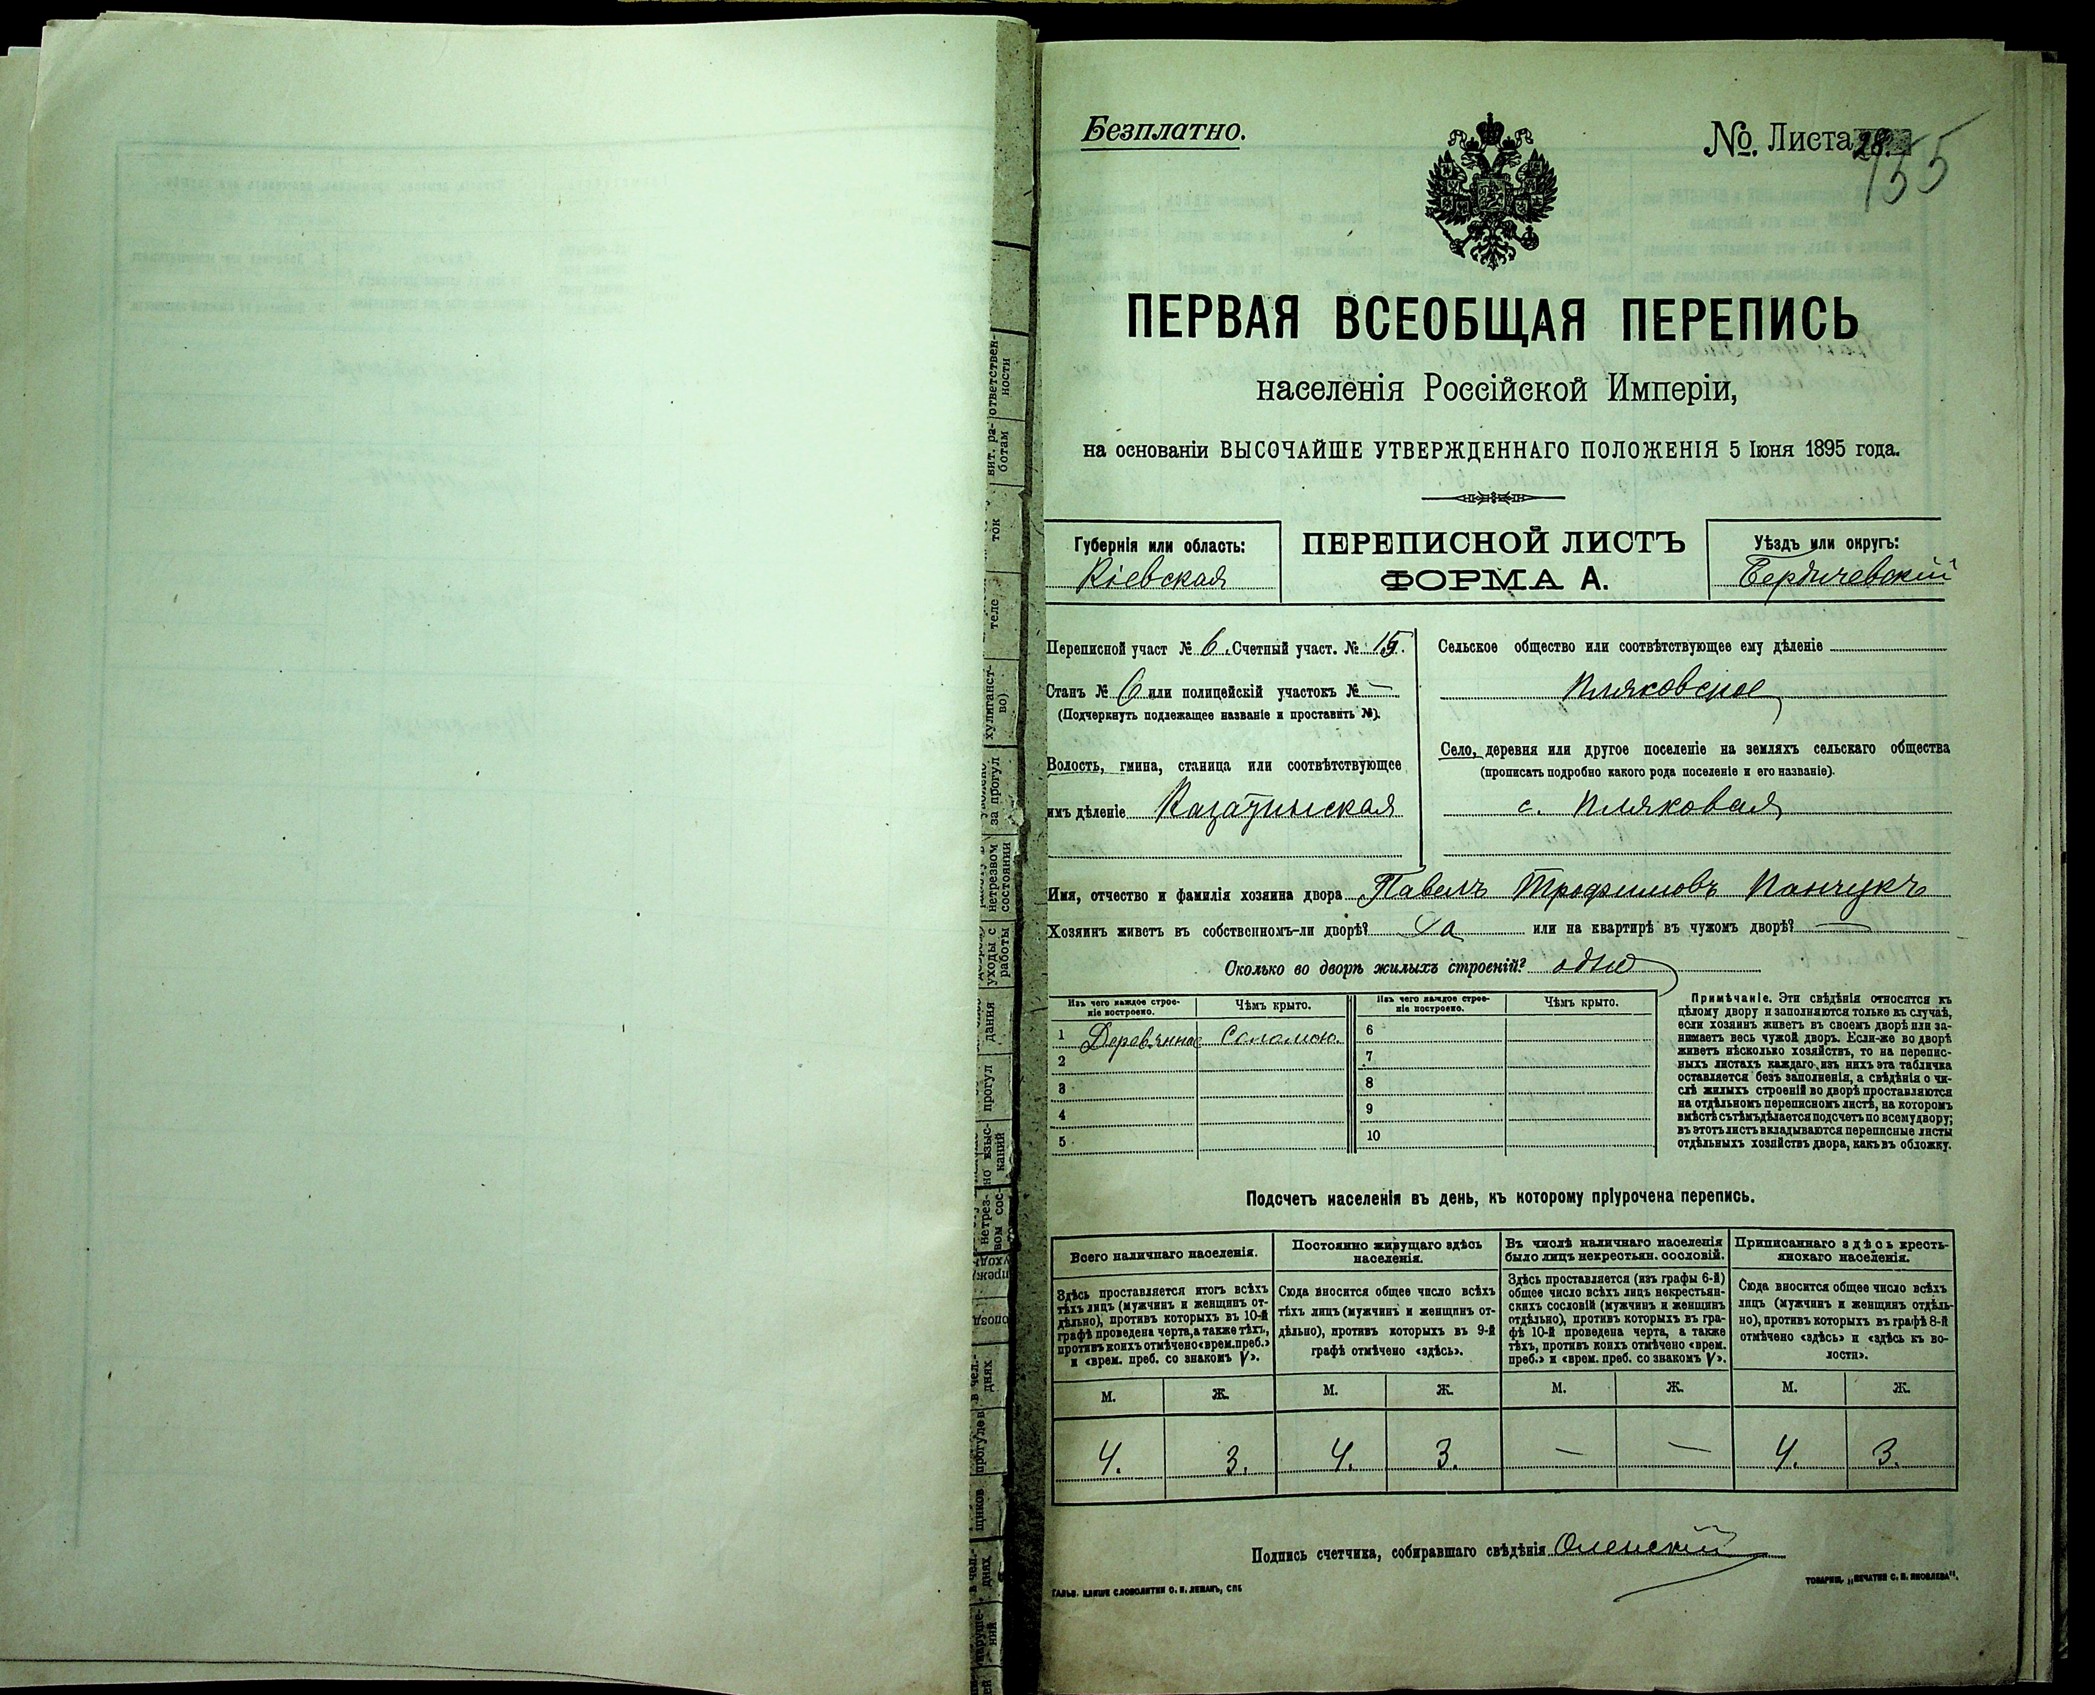 Безплатно.
№ Листа 28.
155
ПЕРВАЯ ВСЕОБЩАЯ ПЕРЕПИСЬ
населенія Россійской Имперіи,
на основаніи ВЫСОЧАЙШЕ УТВЕРЖДЕННАГО ПОЛОЖЕНІЯ 5 Іюня 1895 года.
Губернія или область:
Кіевская
ПЕРЕПИСНОЙ ЛИСТЪ
ФОРМА А.
Уѣздъ или округъ:
Бердичевскій
Переписной участ № 6. Счетный участ. № 15.
Станъ № 6 или полицейскій участокъ № —
(Подчеркнуть подлежащее названіе и проставить №).
Волость, гмина, станица или соотвѣтствующее
имъ дѣленіе Казатинская
Сельское общество или соотвѣтствующее ему дѣленіе
Пляковское
Село, деревня или другое поселеніе на земляхъ сельскаго общества
(прописать подробно какого рода поселеніе и его названіе).
с. Пляковая
Имя, отчество и фамилія хозяина двора Павелъ Трофимовъ Панчукъ
Хозяинъ живетъ въ собственномъ-ли дворѣ? да или на квартирѣ въ чужомъ дворѣ? —
Сколько во дворѣ жилыхъ строеній? одно
Изъ чего каждое строе-
ніе построено.
Чѣмъ крыто.
Изъ чего каждое строе-
ніе построено.
Чѣмъ крыто.
1 Деревянное Соломою. 6
2 7
3 8
4 9
5 10
Примѣчаніе. Эти свѣдѣнія относятся къ
цѣлому двору и заполняются только въ случаѣ,
если хозяинъ живетъ въ своемъ дворѣ или за-
нимаетъ весь чужой дворъ. Если-же во дворѣ
живетъ нѣсколько хозяйствъ, то на перепис-
ныхъ листахъ каждаго изъ нихъ эта табличка
оставляется безъ заполненія, а свѣдѣнія о чи-
слѣ жилыхъ строеній во дворѣ проставляются
на отдѣльномъ переписномъ листѣ, на которомъ
вмѣстѣ съ тѣмъ дѣлается подсчетъ по всему двору;
въ этотъ листъ вкладываются переписные листы
отдѣльныхъ хозяйствъ двора, какъ въ обложку.
Подсчетъ населенія въ день, къ которому пріурочена перепись.
Всего наличнаго населенія.
Здѣсь проставляется итогъ всѣхъ
тѣхъ лицъ (мужчинъ и женщинъ от-
дѣльно), противъ которыхъ въ 10-й
графѣ проведена черта, а также тѣхъ,
противъ коихъ отмѣчено «врем. преб.»
и «врем. преб. со знакомъ V».
Постоянно живущаго здѣсь
населенія.
Сюда вносится общее число всѣхъ
тѣхъ лицъ (мужчинъ и женщинъ от-
дѣльно), противъ которыхъ въ 9-й
графѣ отмѣчено «здѣсь».
Въ числѣ наличнаго населенія
было лицъ некрестьян. сословій.
Здѣсь проставляется (изъ графы 6-й)
общее число всѣхъ лицъ некрестьян-
скихъ сословій (мужчинъ и женщинъ
отдѣльно), противъ которыхъ въ гра-
фѣ 10-й проведена черта, а также
тѣхъ, противъ коихъ отмѣчено «врем.
преб.» и «врем. преб. со знакомъ V».
Приписаннаго здѣсь кресть-
янскаго населенія.
Сюда вносится общее число всѣхъ
лицъ (мужчинъ и женщинъ отдѣль-
но), противъ которыхъ въ графѣ 8-й
отмѣчено «здѣсь» и «здѣсь къ во-
лости».
М. Ж. М. Ж. М. Ж. М. Ж.
4. 3. 4. 3. — — 4. 3.
Подпись счетчика, собиравшаго свѣдѣнія Оленскій
ГАЛЬВ. КЛИШЕ СЛОВОЛИТНИ О. И. ЛЕМАНЪ, СПБ
ТОВАРИЩ. „ПЕЧАТНЯ С. П. ЯКОВЛЕВА".
ответствен-
ности
вит. ра-
ботам
ток
теле
хулиганст-
во)
за прогул
нетрезвом
состоянии
уходы с
работы
дания
прогул
но взыс-
каний
нетрез-
вом сос-
опозд
в чел.-
днях
прогулов
щиков
в чел.-
днях
наруше-
ний